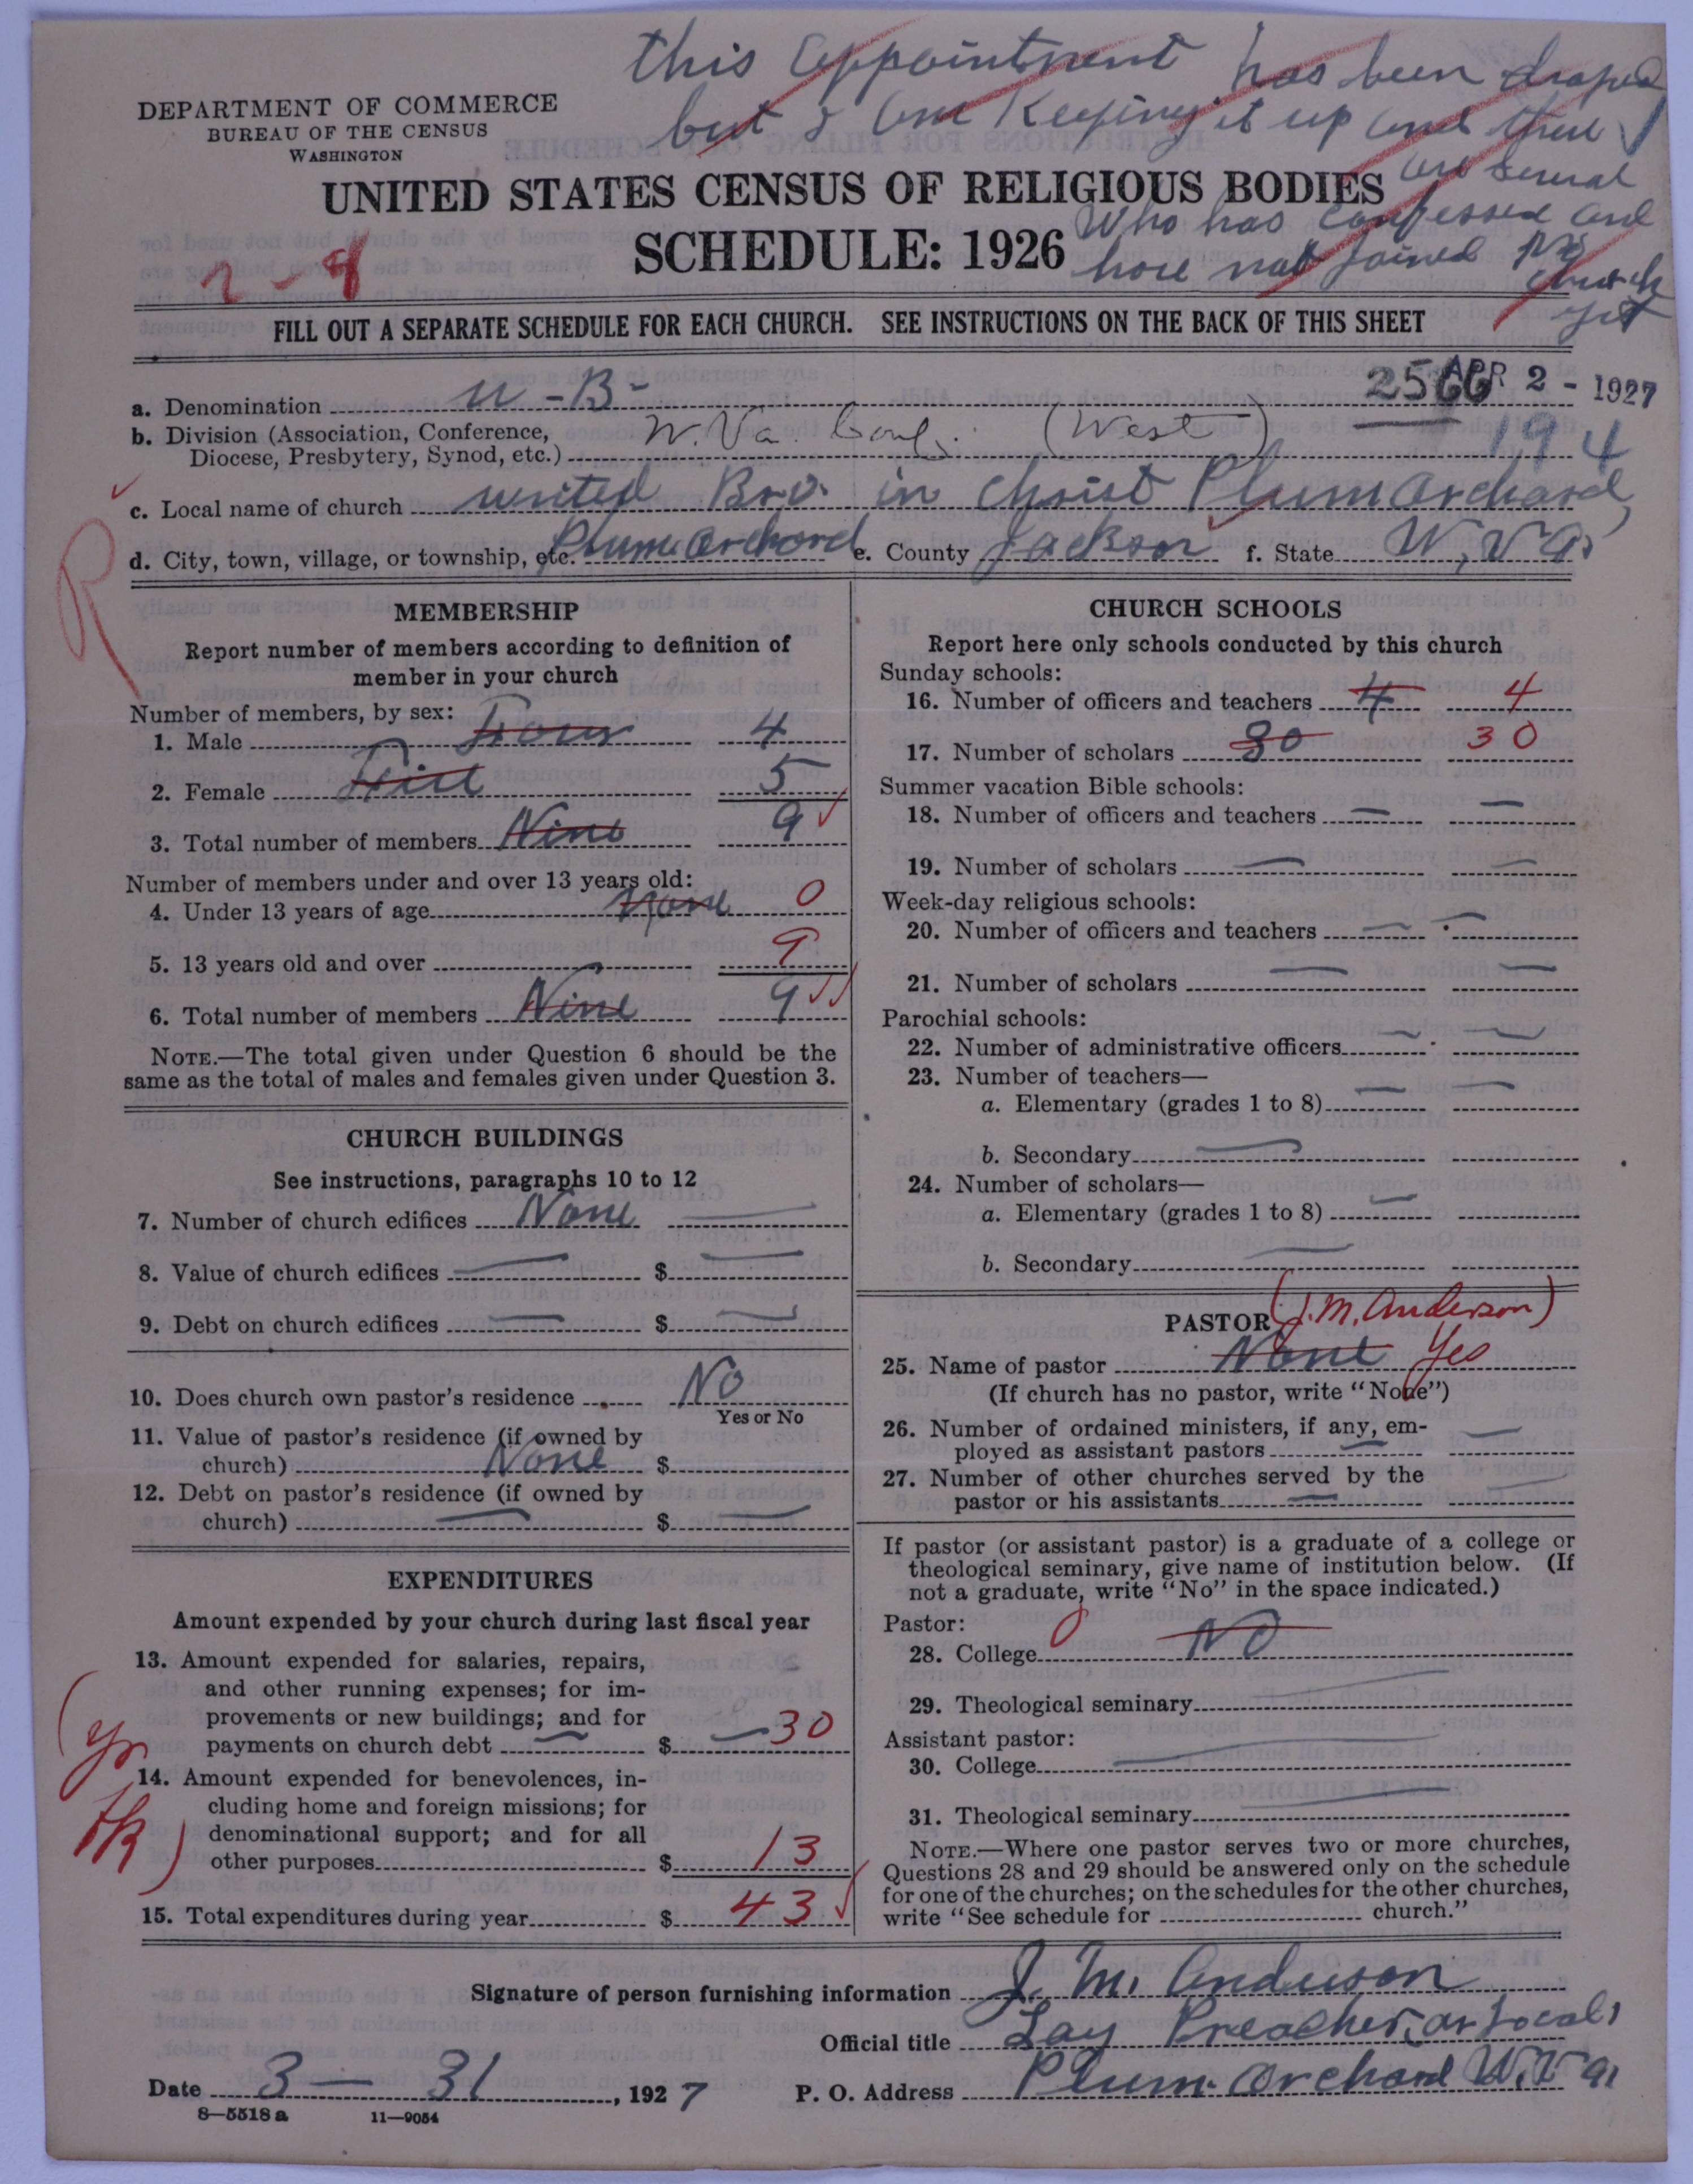 this appointment has been droped
but I am Keeping it up and there
are several
DEPARTMENT OF COMMERCE
BUREAU OF THE CENSUS
WASHINGTON
UNITED STATES CENSUS OF RELIGIOUS BODIES
Who has confessed and
SCHEDULE: 1926
have not joined
church
yet
2-8
FILL OUT A SEPARATE SCHEDULE FOR EACH CHURCH. SEE INSTRUCTIONS ON THE BACK OF THIS SHEET
2566 APR 2 - 1927
a. Denomination U-B-
b. Division (Association, Conference, Diocese, Presbytery, Synod, etc.) W. Va. Conf. (West) 194
c. Local name of church united Bro. in Christ Plum Orchard
d. City, town, village, or township, etc. Plum Orchard e. County Jackson f. State W, Va.
R
MEMBERSHIP
Report number of members according to definition of
member in your church
Number of members, by sex:
1. Male Four 4
2. Female 5
3. Total number of members Nine 9
Number of members under and over 13 years old:
4. Under 13 years of age None 0
5. 13 years old and over 9
6. Total number of members Nine 9
NOTE.—The total given under Question 6 should be the
same as the total of males and females given under Question 3.
CHURCH BUILDINGS
See instructions, paragraphs 10 to 12
7. Number of church edifices None —
8. Value of church edifices — $ —
9. Debt on church edifices — $ —
10. Does church own pastor's residence No
Yes or No
11. Value of pastor's residence (if owned by
church) None $
12. Debt on pastor's residence (if owned by
church) — $ —
EXPENDITURES
Amount expended by your church during last fiscal year
13. Amount expended for salaries, repairs,
and other running expenses; for im-
provements or new buildings; and for
payments on church debt — $ — 30
14. Amount expended for benevolences, in-
cluding home and foreign missions; for
denominational support; and for all
other purposes $ 13
15. Total expenditures during year $ 43
CHURCH SCHOOLS
Report here only schools conducted by this church
Sunday schools:
16. Number of officers and teachers 4 4
17. Number of scholars 30 30
Summer vacation Bible schools:
18. Number of officers and teachers — —
19. Number of scholars — —
Week-day religious schools:
20. Number of officers and teachers — —
21. Number of scholars — —
Parochial schools:
22. Number of administrative officers — —
23. Number of teachers—
a. Elementary (grades 1 to 8) — —
b. Secondary —
24. Number of scholars—
a. Elementary (grades 1 to 8) —
b. Secondary —
PASTOR (J. M. Anderson)
25. Name of pastor None Yes
(If church has no pastor, write "None")
26. Number of ordained ministers, if any, em-
ployed as assistant pastors — —
27. Number of other churches served by the
pastor or his assistants — —
If pastor (or assistant pastor) is a graduate of a college or
theological seminary, give name of institution below. (If
not a graduate, write "No" in the space indicated.)
Pastor:
28. College 0 No
29. Theological seminary —
Assistant pastor:
30. College —
31. Theological seminary —
NOTE.—Where one pastor serves two or more churches,
Questions 28 and 29 should be answered only on the schedule
for one of the churches; on the schedules for the other churches,
write "See schedule for church."
Signature of person furnishing information J. M. Anderson
Official title Lay Preacher, or Local
Date 3 — 31, 1927 P. O. Address Plum Orchard W. Va
8—5518 a 11—9054